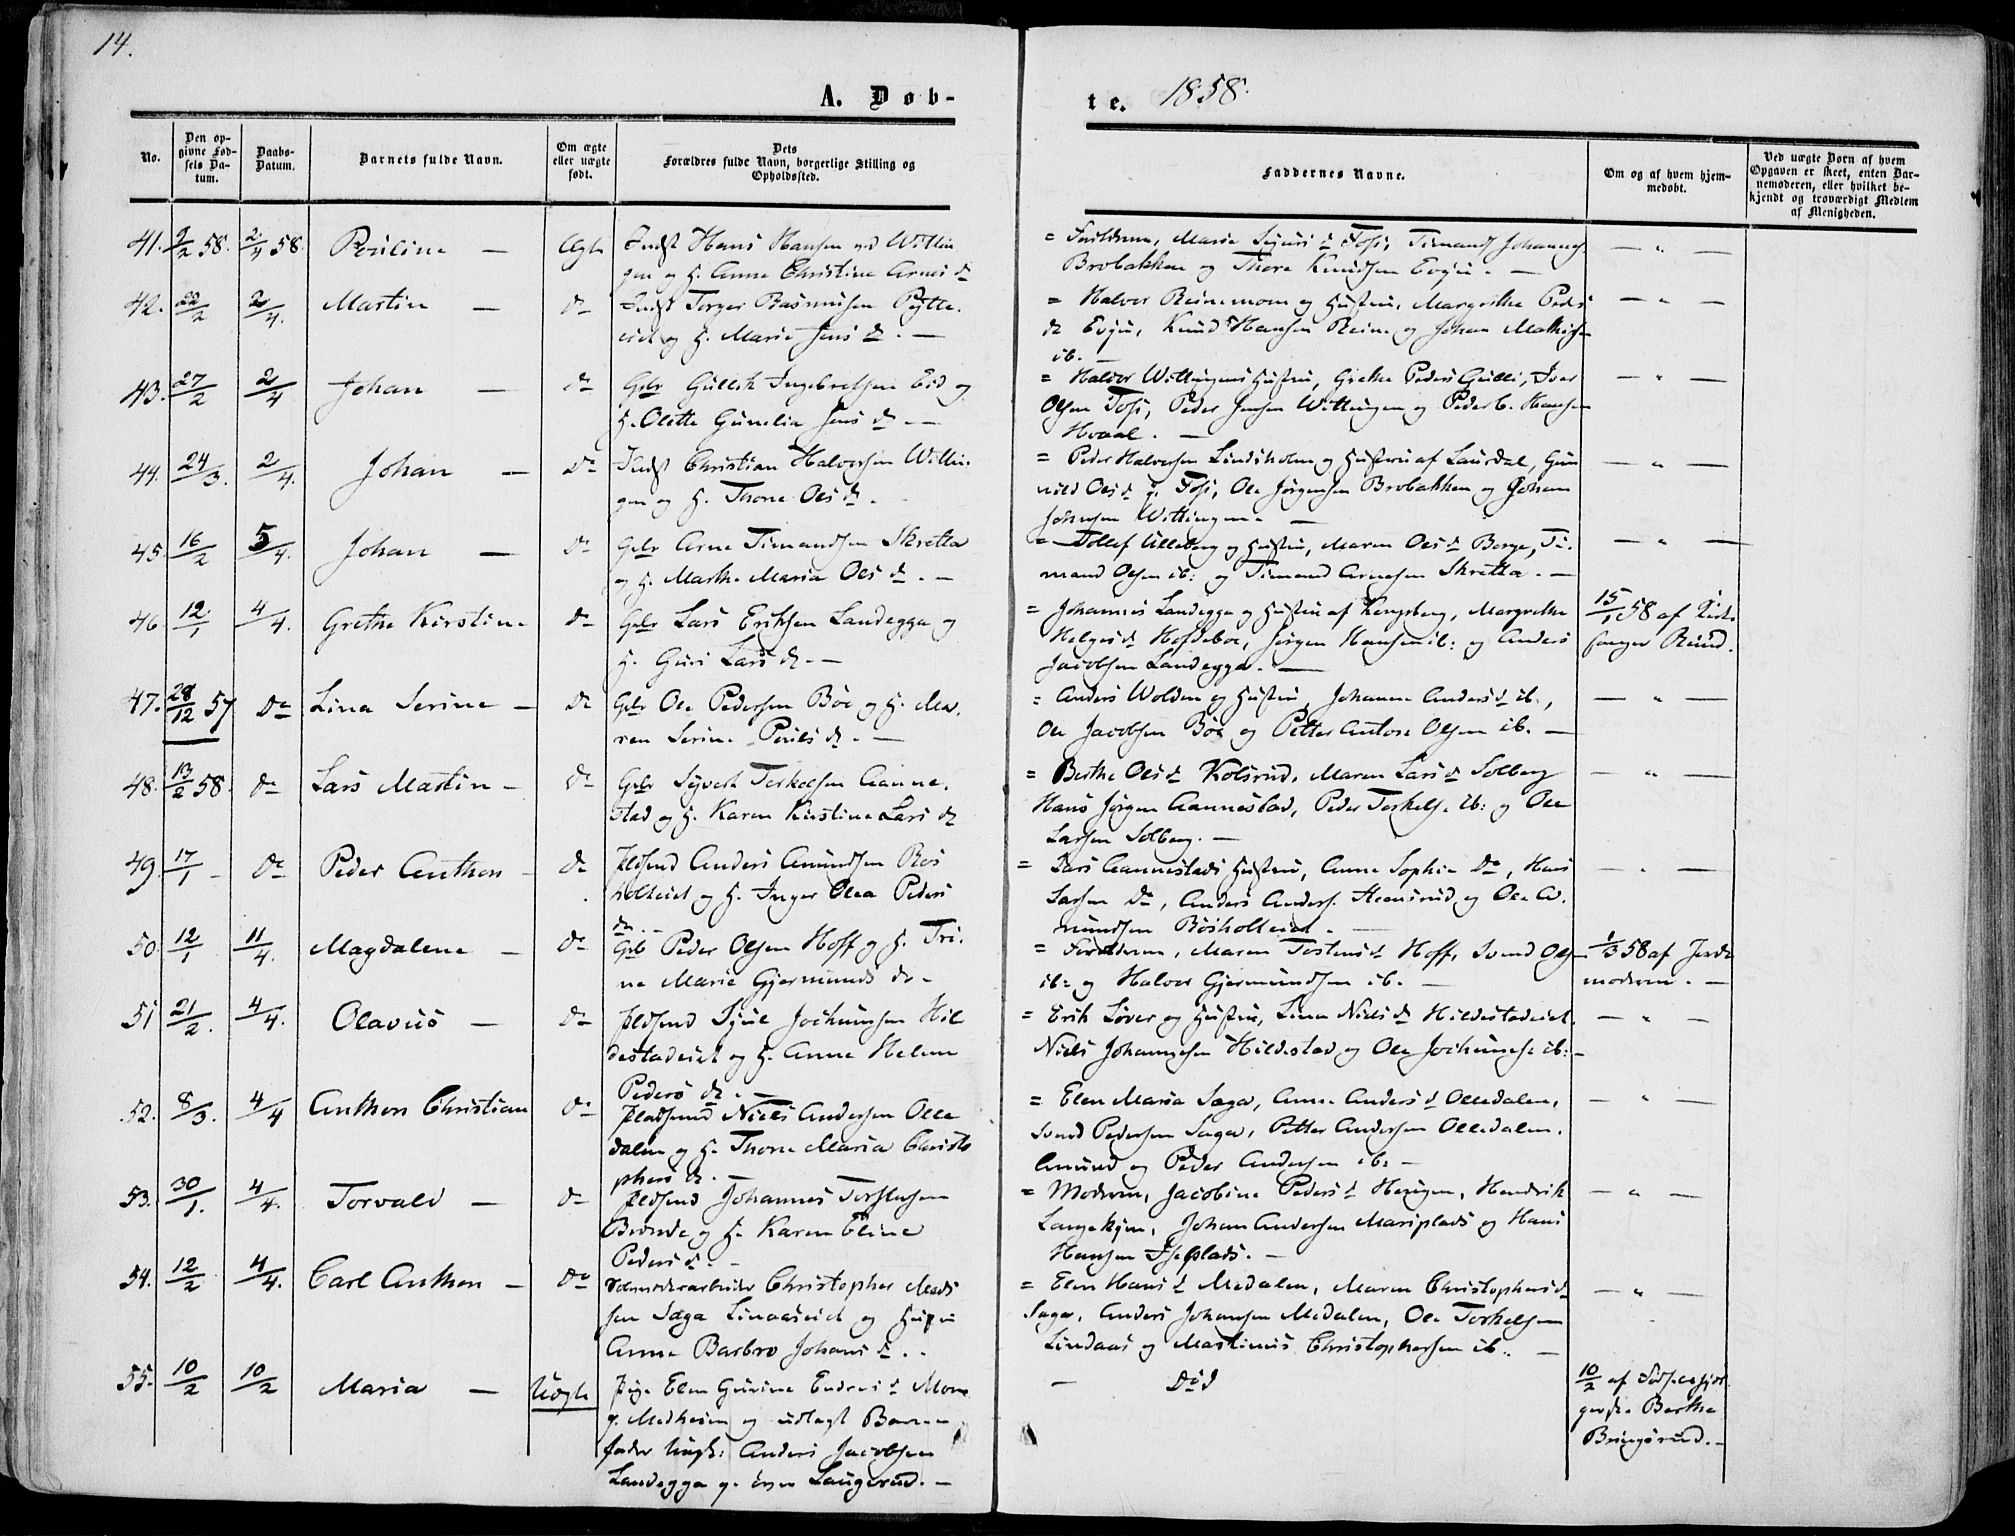 14.
A. Døb-
te. 1858.
No.
Den op-
givne Fød-
sels Da-
tum.
Daabs-
Datum.
Barnets fulde Navn.
Om ægte
eller uægte
født.
Dets
Forældres fulde Navn, borgerlige Stilling og
Opholdssted.
Faddernes Navne.
Om og af hvem hjem-
medøbt.
Ved uægte Børn af hvem
Opgaven er skeet, enten Bar-
nemoderen, eller hvilket be-
kjendt og troværdigt Medlem
af Menigheden.
41. 9/2 58. 2/4 58. Pauline — Ægte Indst Hans Hansen
gen og H. Anne Christine Arnes dr
= Forældrene, Marie Sjurs d Foss, Timand Johannes.
Brobakken og Thore Knudsen Evju. —
— " —
42. 22/2 2/4. Martin — do Indst Torger Rasmusen Pytte.
eiet og H. Marie Jens dr. —
= Halvor Reinemoen og Hustru, Margrethe Peders
dr Evju, Knud Hansen Reine og Johan Mathis
ib. —
— " —
43. 27/2 2/4 Johan — do Gbr Gullik Ingebretsen Eid og
H. Olette Gunelia Jens dr. —
= Halvor Wittingens Hustru, Grethe Peders Gulli, Iver
Olsen Foss, Peder Jensen Wittingen og Peder C. Hansen
Hvaal. —
— " —
44. 24/3. 2/4. Johan — do Indst Christian Halvorsen Wittin.
gen og H. Thone Ols dr.
= Peder Halvorsen Lindsholm og Hustru af Laurdal, Gun
nild Ols d p. Foss, Ole Jørgensen Brobakken og Johan
Johnsen Wittingen. —
— " —
45. 16/2 5/4. Johan — do Gbr Arne Timandsen Skretta
og H. Marthe Maria Ols dr. —
= Tollef Ulleberg og Hustru, Maren Ols d Berge, Ti.
mand Olsen ib: og Timand Arnesen Skretta. —
— " —
46 12/1 4/4. Grethe Kirstine do Gbr Lars Eriksen Landegga og
H. Guri Lars dr. —
= Johannes Landegga og Hustru af Kongsberg, Margrethe
Helges d Hofdeboe, Jørgen Hansen ib: og Anders
Jacobsen Landegga. —
15/1 58 af Kirke
sanger Rund.
47. 28/12 57 do Lina Serine — do Gbr Ole Pedersen Böe og H. Ma.
ren Serine Pouls dr. —
= Anders Wolden og Hustru, Johanne Anders d ib.,
Ole Jacobsen Böe og Petter Anton Olsen ib. —
— " —
48. 13/2 58. do Lars Martin — do Gbr Syvert Torkelsen Aanne.
stad og H. Karen Kirstine Lars dr
= Berthe Ols d Kolsrud, Maren Lars d Solberg
Hans Jørgen Aannestad, Peder Torkels. ib: og Ole
Larsen Solberg. —
— " —
49 17/1 — do Peder Anthon — do Pldsmd Anders Amundsen Bøs
holteiet og H. Inger Olea Peders
dr. —
= Lars Aannestads Hustru, Anne Sophie do, Hans
Larsen do, Anders Anders. Heensrud og Ole A.
mundsen Bøsholteiet. —
— " —
50. 12/1 11/4. Magdalene — do Gbr Peder Olsen Hoff og H. Tri.
ne Marie Gjermunds dr —
= Forældrene, Maren Torstens d Hoff, Svend Ols
ib: og Halvor Gjermundsen ib. —
1/3 58 af Jorde
moderen. —
51 21/2. 4/4. Olavus — do Pldsmd Sjul Jochumsen Hil
destadeiet og H. Anne Helene
Peders dr. —
= Erik Løver og Hustru, Lina Niels dr Hildestadeiet.
Niels Johannesen Hildestad og Ole Jochumsen ib: —
— " —
52. 8/3. 4/4 Anthon Christian do Pladsmd Niels Andersen Olle
dalen og H. Thone Maria Christo
phers dr. —
= Elen Maria Saga, Anne Anders d Olledalen,
Svend Pedersen Saga, Petter Andersen Olledalen.
Amund og Peder Andersen ib: —
— " —
53. 30/1. 4/4. Torvald — do Pldsmd Johannes Torstensen
Brønde og H. Karen Eline
Peders d. —
= Moderen, Jacobine Peders d Haugen, Hendrik
Langekjen, Johan Andersen Marsplads og Hans
Hansen —
— " —
54. 12/2 4/4. Carl Anthon — do Christopher Mads
sen Saga Linaaseiet og Hustru
Anne Barbro Johans d. .
= Elen Hans d Medalen, Maren Christophers d
Saga, Anders Johansen Medalen, Ole Torkelsen
Lindaas og Martinus Christophersen ib. —
— " —
55. 10/2 10/2 Maria — Uægte Pige Elen Gurine Endres d Moen
p. Medheim og udlagt Barne
fader Ungk: Anders Jacobsen
Landegga p. Laugerud. —
— Död
10/2 af Fødselshjel
perske Berthe
Bringsrud. —